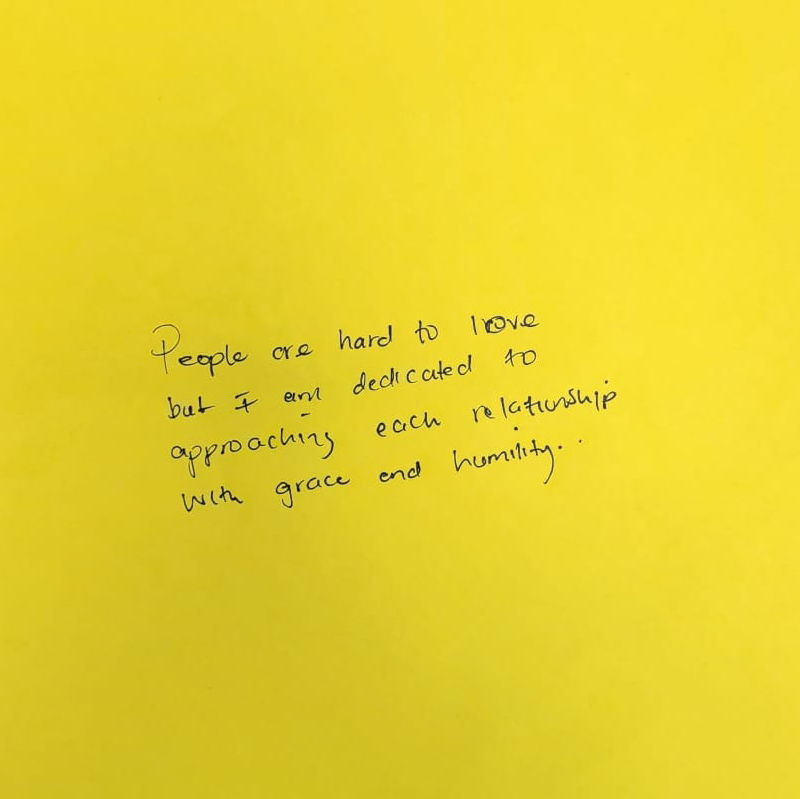 People are hard to love
but I am dedicated to
approaching each relationship
with grace and humility..